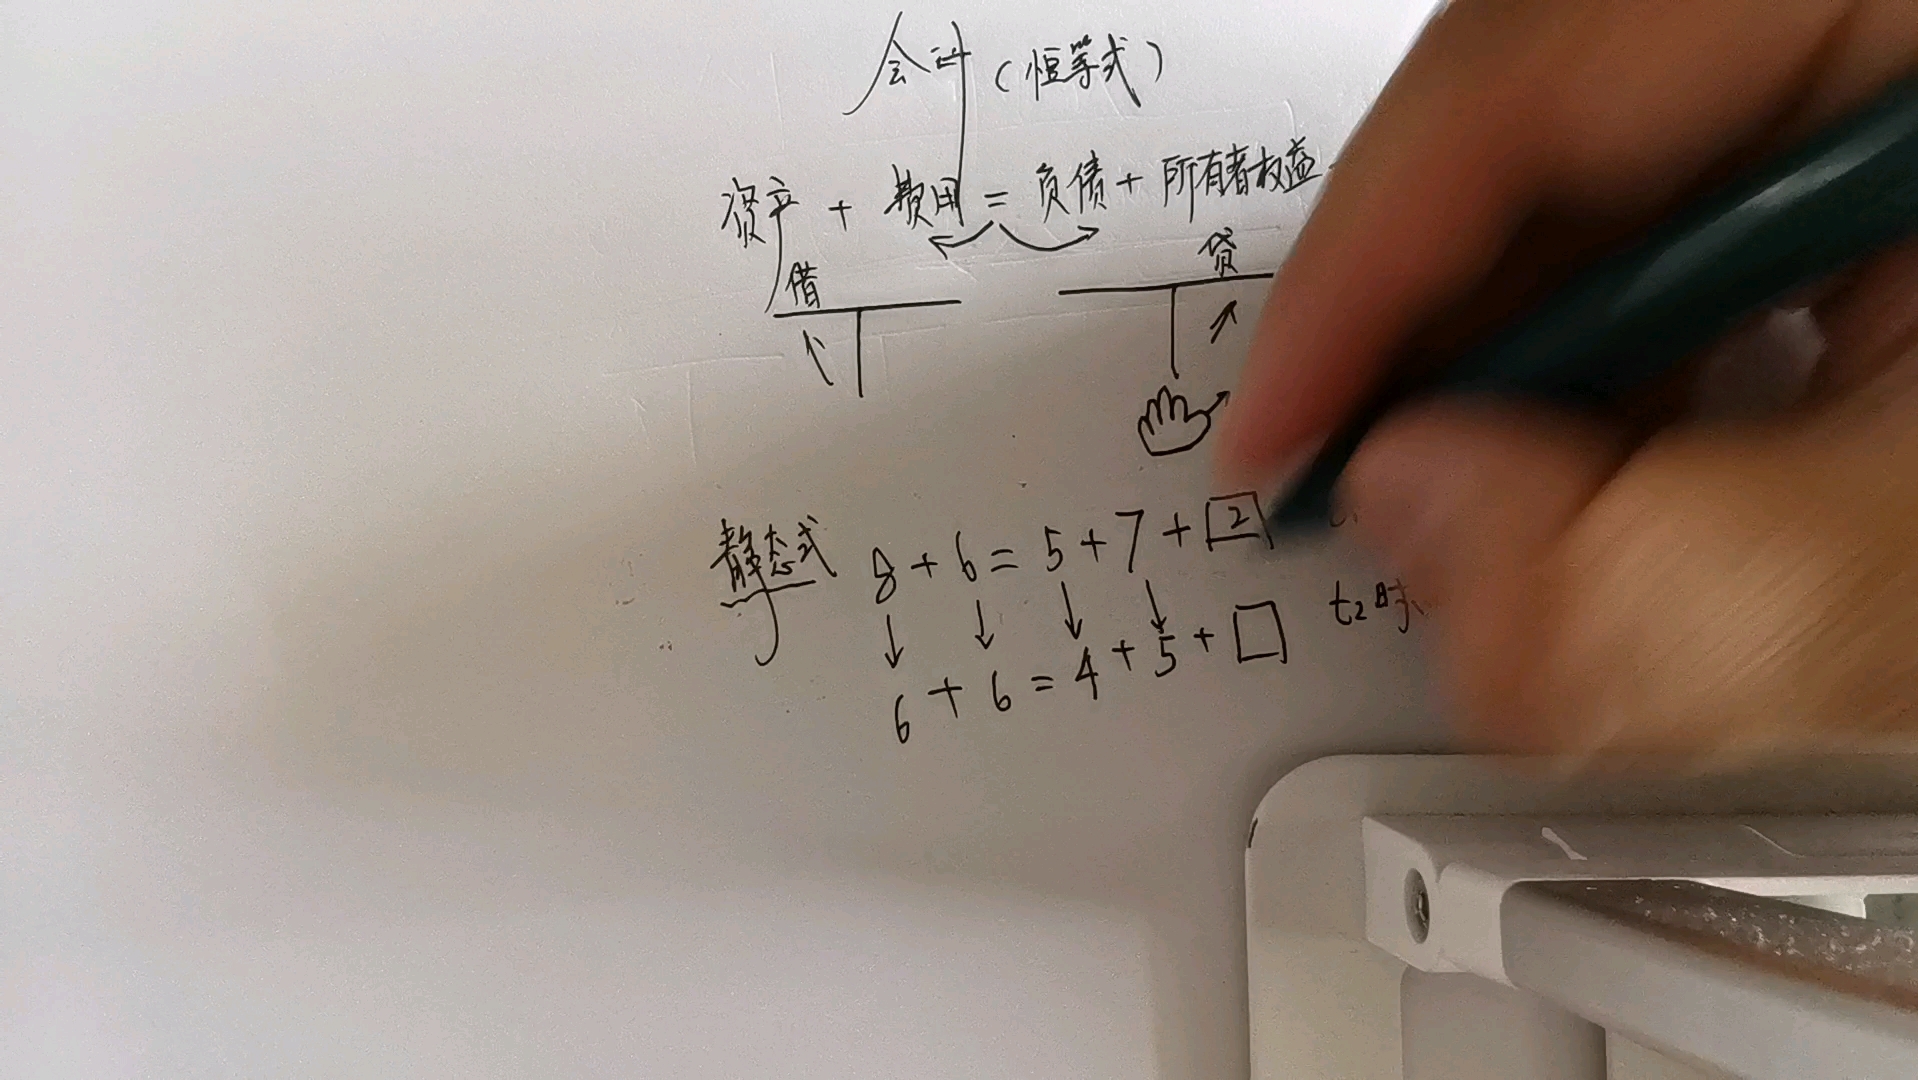 会计（恒等式）
资产 + 费用 = 负债 + 所有者权益
借 贷
静态式 8 + 6 = 5 + 7 + 2
6 + 6 = 4 + 5 + □ t₂时